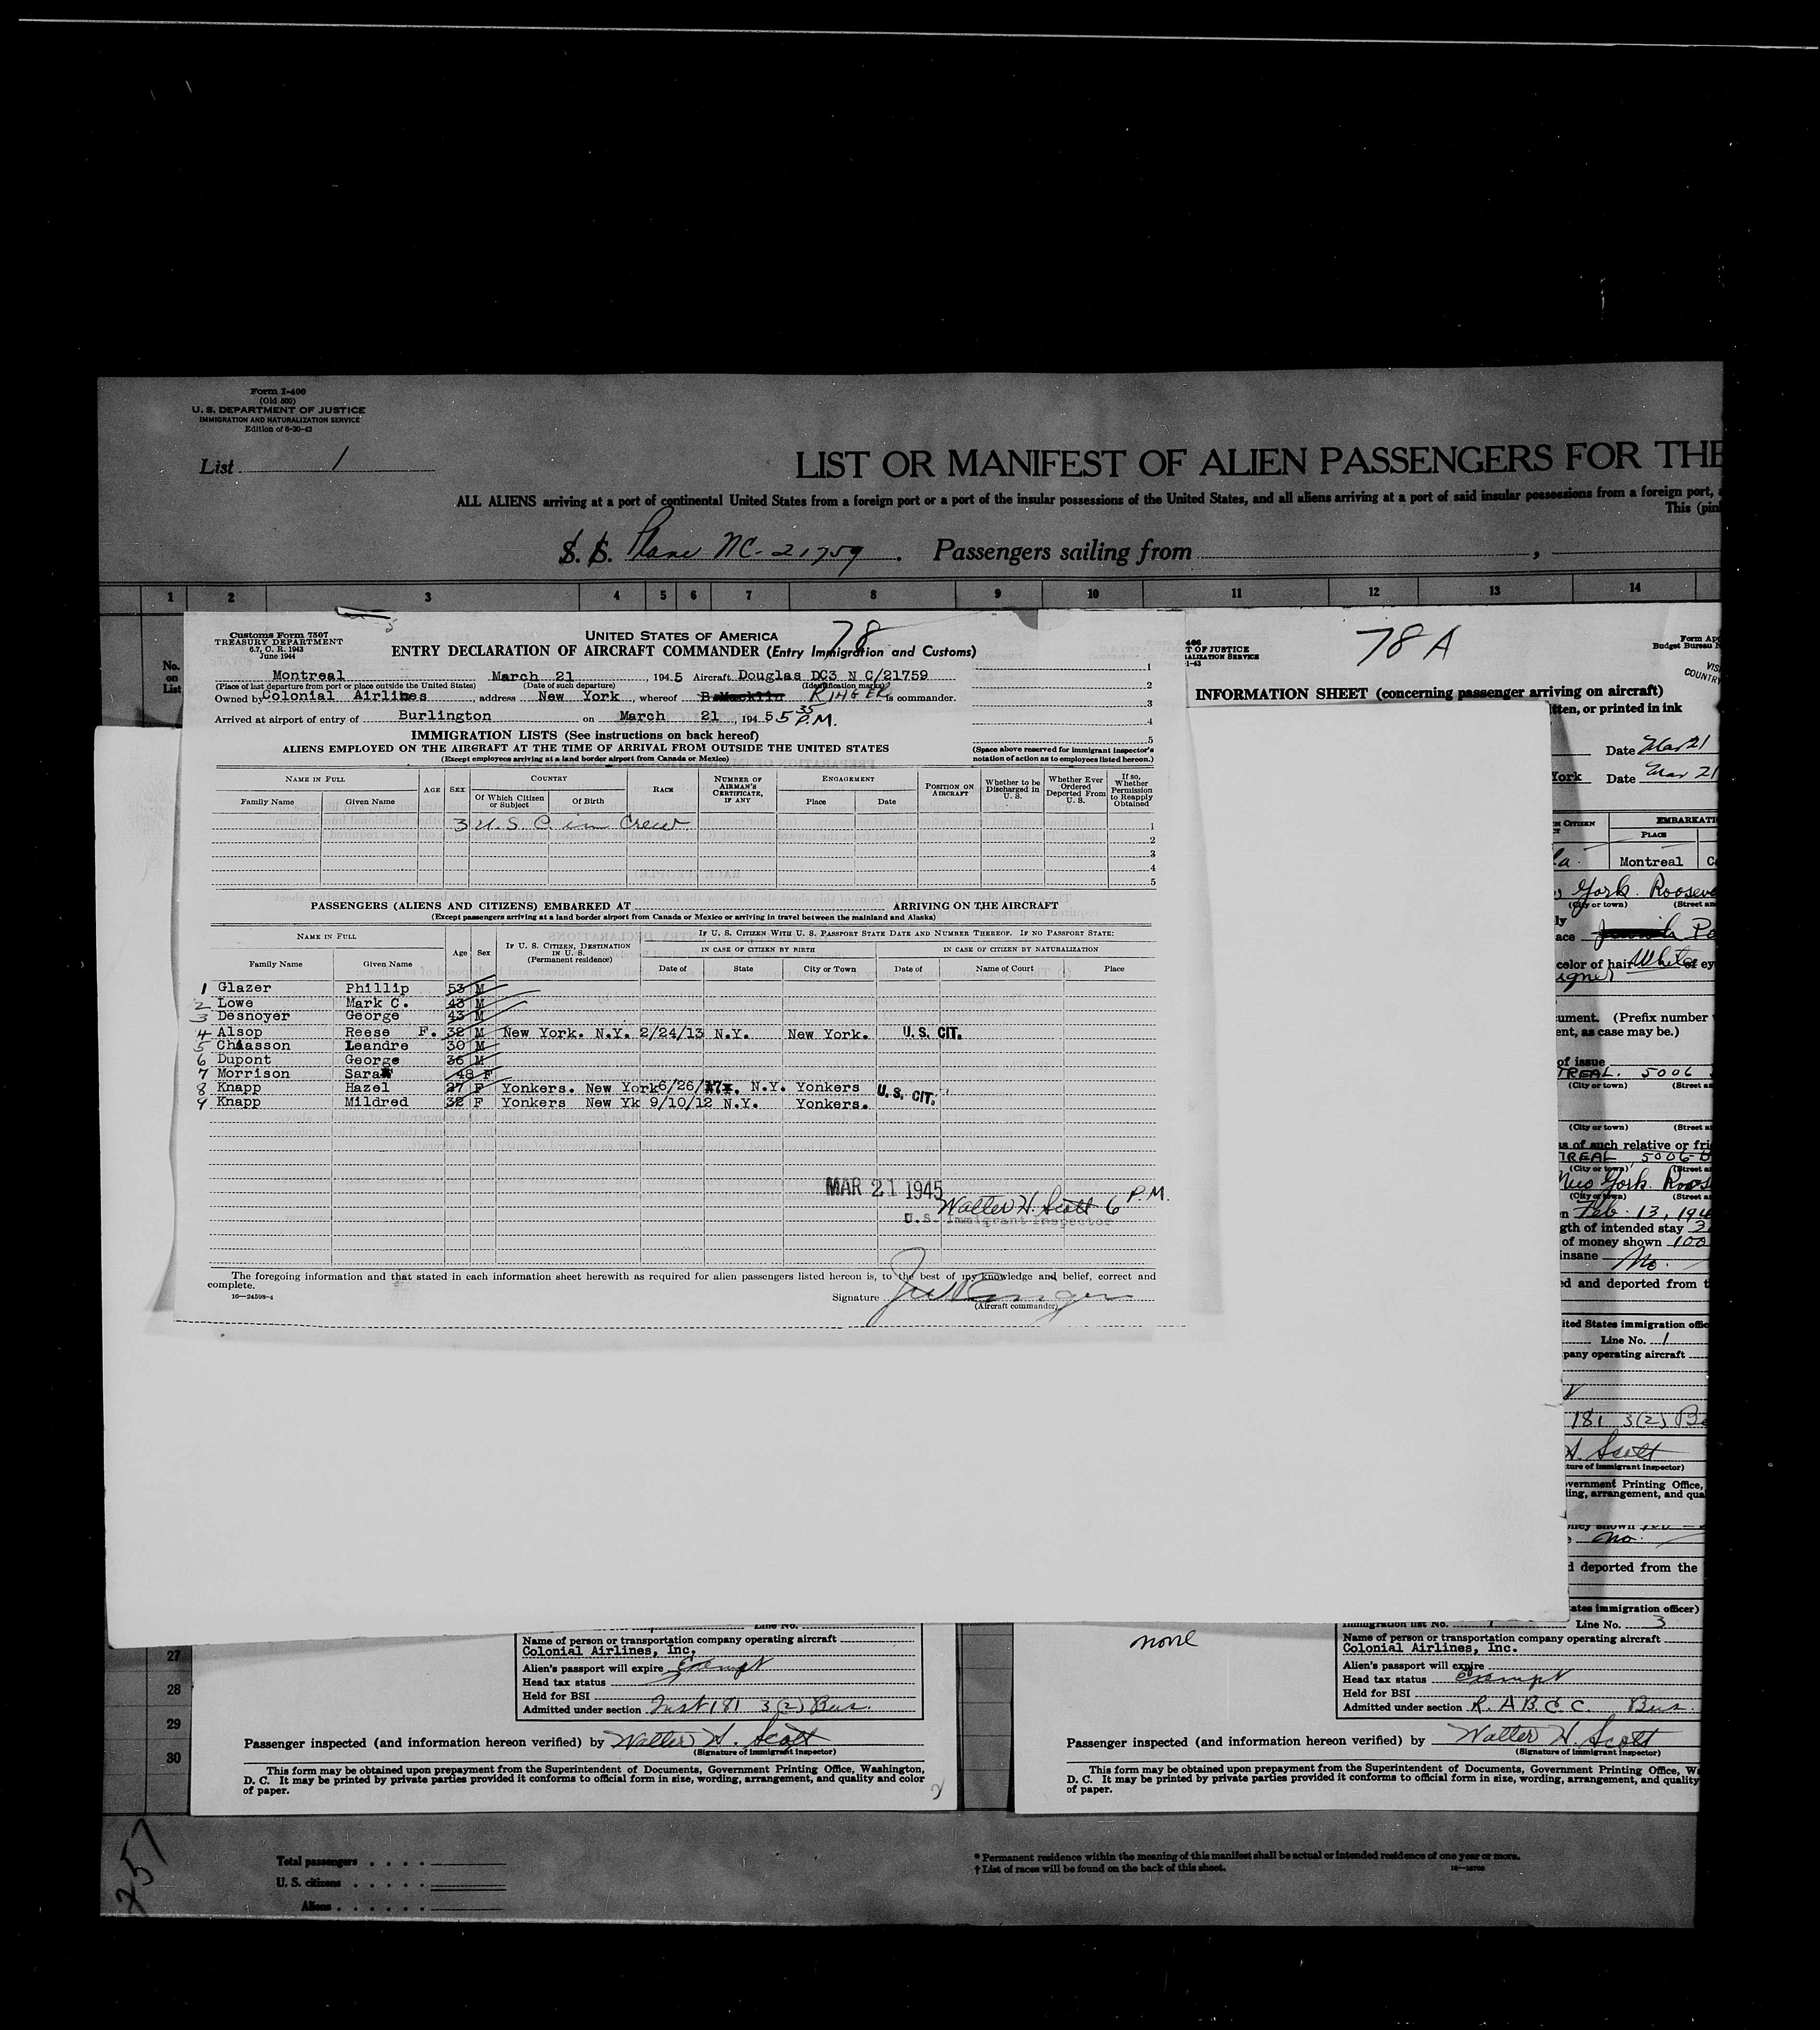 Form I-400
(Old 500)
U. S. DEPARTMENT OF JUSTICE
IMMIGRATION AND NATURALIZATION SERVICE
Edition of 6-20-42
List 1
LIST OR MANIFEST OF ALIEN PASSENGERS FOR THE
ALL ALIENS arriving at a port of continental United States from a foreign port or a port of the insular possessions of the United States, and all aliens arriving at a port of said insular possessions from a foreign port,
This (pin
S. S. Plane NC-21759. Passengers sailing from ,
1 2 3 4 5 6 7 8 9 10 11 12 13 14
No. on List
Customs Form 7507
TREASURY DEPARTMENT
6.7, C. R. 1943
June 1944
UNITED STATES OF AMERICA
78
ENTRY DECLARATION OF AIRCRAFT COMMANDER (Entry Immigration and Customs)
Montreal March 21, 1945 Aircraft Douglas DC3 N C/21759
(Place of last departure from port or place outside the United States) (Date of such departure) (Identification marks)
Owned by Colonial Airlines, address New York, whereof RINGER is commander.
Arrived at airport of entry of Burlington on March 21, 1945 5 35 P.M.
1
2
3
4
5
IMMIGRATION LISTS (See instructions on back hereof)
ALIENS EMPLOYED ON THE AIRCRAFT AT THE TIME OF ARRIVAL FROM OUTSIDE THE UNITED STATES
(Except employees arriving at a land border airport from Canada or Mexico)
(Space above reserved for immigrant inspector's notation of action as to employees listed hereon.)
NAME IN FULL AGE SEX COUNTRY RACE NUMBER OF AIRMAN'S CERTIFICATE, IF ANY ENGAGEMENT POSITION ON AIRCRAFT Whether to be Discharged in U. S. Whether Ever Ordered Deported From U. S. If so, Whether Permission to Reapply Obtained
Family Name Given Name Of Which Citizen or Subject Of Birth Place Date
3 U.S.C in Crew 1
2
3
4
5
PASSENGERS (ALIENS AND CITIZENS) EMBARKED AT ARRIVING ON THE AIRCRAFT
(Except passengers arriving at a land border airport from Canada or Mexico or arriving in travel between the mainland and Alaska)
NAME IN FULL Age Sex IF U. S. CITIZEN, DESTINATION IN U. S. (Permanent residence) IF U. S. CITIZEN WITH U. S. PASSPORT STATE DATE AND NUMBER THEREOF. IF NO PASSPORT STATE:
IN CASE OF CITIZEN BY BIRTH IN CASE OF CITIZEN BY NATURALIZATION
Family Name Given Name Date of State City or Town Date of Name of Court Place
1 Glazer Phillip 53 M
2 Lowe Mark C. 43 M
3 Desnoyer George 43 M
4 Alsop Reese F. 32 M New York. N.Y. 2/24/13 N.Y. New York. U.S. CIT.
5 Chiasson Leandre 30 M
6 Dupont George 36 M
7 Morrison Sara 48 F
8 Knapp Hazel 27 F Yonkers. New York 6/26/17. N.Y. Yonkers U.S. CIT.
9 Knapp Mildred 32 F Yonkers New Yk 9/10/12 N.Y. Yonkers.
MAR 21 1945
Walter H. Scott 6 P.M.
U.S. Immigrant Inspector
The foregoing information and that stated in each information sheet herewith as required for alien passengers listed hereon is, to the best of my knowledge and belief, correct and
complete.
16—24598-4
Signature
(Aircraft commander)
78A
T OF JUSTICE
ALIZATION SERVICE
1-43
Form Ap
Budget Bureau
COUNTRY
INFORMATION SHEET (concerning passenger arriving on aircraft)
tten, or printed in ink
Date Mar 21
York Date Mar 21
EMBARKATI
PLACE
Montreal
York. Roosev
(City or town) (Street an
color of hair White of ey
ument. (Prefix number
ent, as case may be.)
of issue
TREAL. 5006
(City or town) (Street a
(City or town) (Street a
s of such relative or fri
TREAL 5006
(City or town) (Street a
New York. Roos
(City or town) (Street a
n Feb. 13, 194
gth of intended stay 3
of money shown 100
insane No.
ed and deported from t
ited States immigration offic
Line No. 1
pany operating aircraft
181 3(2) B
H. Scott
ture of Immigrant Inspector)
vernment Printing Office,
ling, arrangement, and qua
ney shown 100
no.
d deported from the
ates immigration officer)
Line No.
27
28
29
30
Name of person or transportation company operating aircraft
Colonial Airlines, Inc.
Alien's passport will expire exempt
Head tax status
Held for BSI
Admitted under section Inst 181 3(2) Bus.
Passenger inspected (and information hereon verified) by Walter H. Scott
(Signature of immigrant inspector)
This form may be obtained upon prepayment from the Superintendent of Documents, Government Printing Office, Washington,
D. C. It may be printed by private parties provided it conforms to official form in size, wording, arrangement, and quality and color
of paper.
none
Immigration list No. 1 Line No. 3
Name of person or transportation company operating aircraft
Colonial Airlines, Inc.
Alien's passport will expire
Head tax status exempt
Held for BSI
Admitted under section R.A.B.C.C. Bus
Passenger inspected (and information hereon verified) by Walter H. Scott
(Signature of immigrant inspector)
This form may be obtained upon prepayment from the Superintendent of Documents, Government Printing Office, W
D. C. It may be printed by private parties provided it conforms to official form in size, wording, arrangement, and quality
of paper.
257
Total passengers
U. S. citizens
Aliens
* Permanent residence within the meaning of this manifest shall be actual or intended residence of one year or more.
† List of races will be found on the back of this sheet.